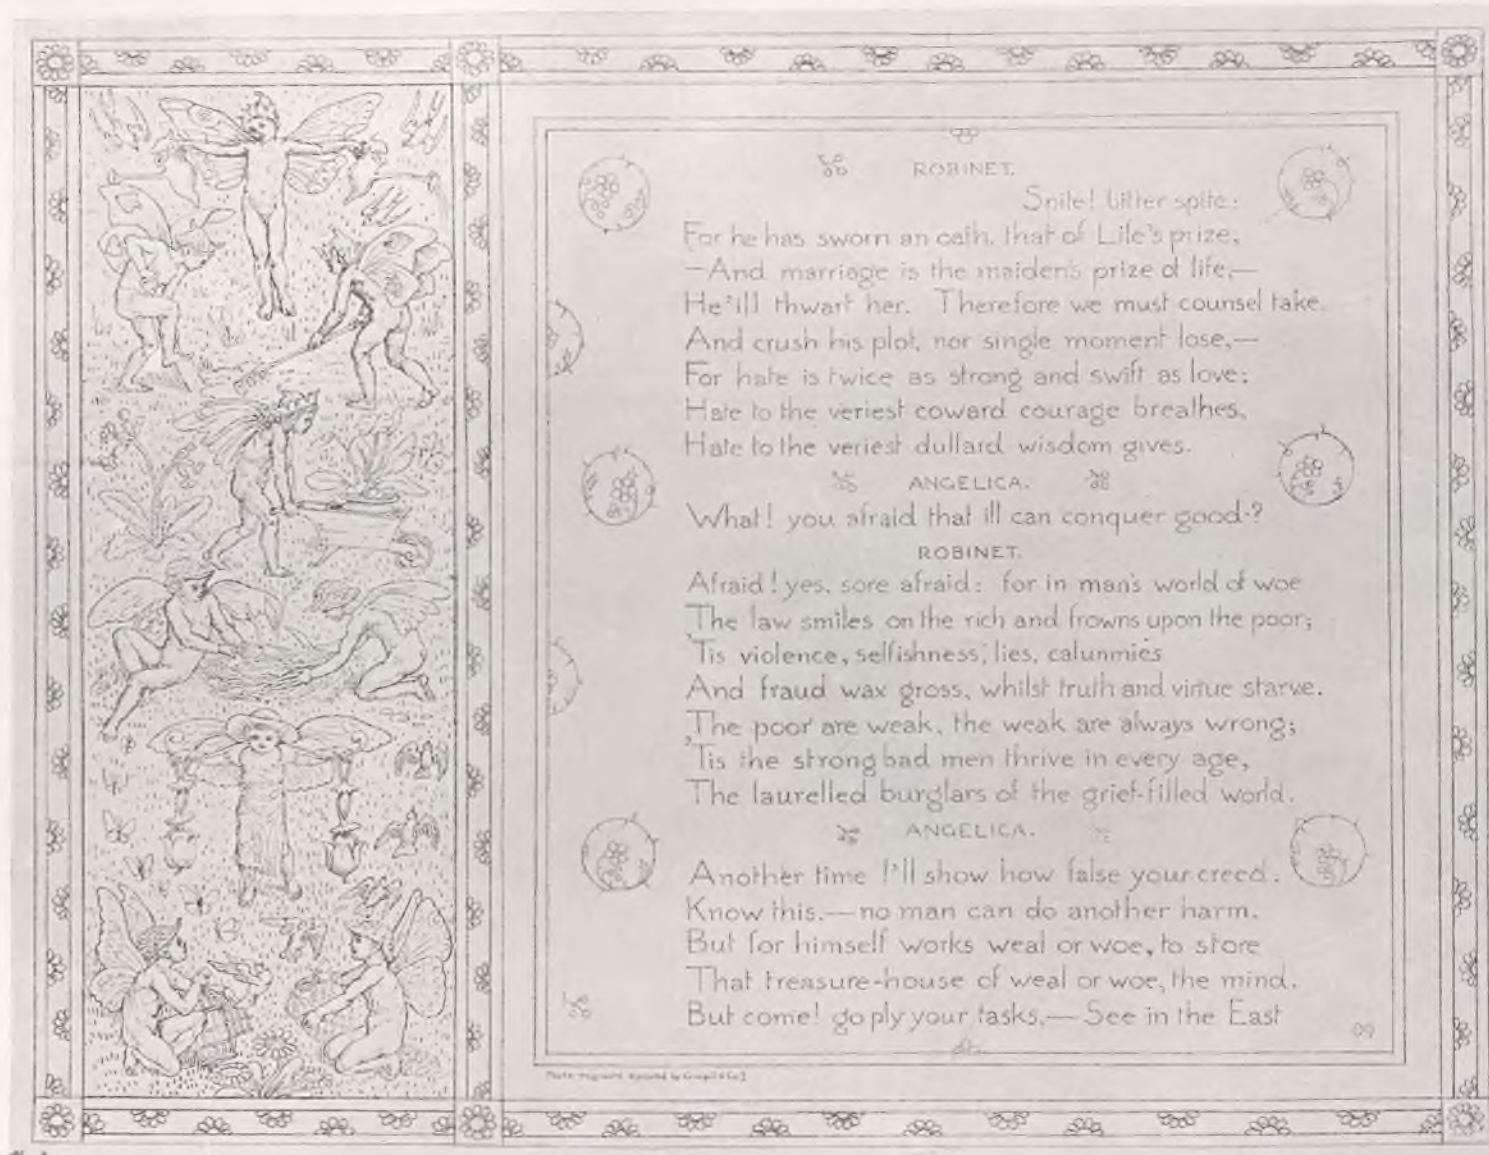 ROBINET.
Spite! bitter spite:
For he has sworn an oath, that of Life's prize,
—And marriage is the maiden's prize of life,—
He'ill thwart her. Therefore we must counsel take.
And crush his plot, nor single moment lose,—
For hate is twice as strong and swift as love;
Hate to the veriest coward courage breathes,
Hate to the veriest dullard wisdom gives.
ANGELICA.
What! you afraid that ill can conquer good?
ROBINET.
Afraid! yes, sore afraid: for in man's world of woe
The law smiles on the rich and frowns upon the poor;
'Tis violence, selfishness, lies, calumnies
And fraud wax gross, whilst truth and virtue starve.
The poor are weak, the weak are always wrong;
'Tis the strong bad men thrive in every age,
The laurelled burglars of the grief-filled world.
ANGELICA.
Another time I'll show how false your creed.
Know this,—no man can do another harm.
But for himself works weal or woe, to store
That treasure-house of weal or woe, the mind.
But come! go ply your tasks,— See in the East